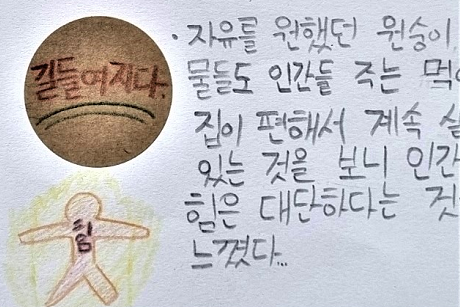 길들여지다.
· 자유를 원했던 원숭이
물들도 인간들 주는
집이 편해서 계속
있는 것을 보니
힘은 대단하다는
느꼈다..
힘